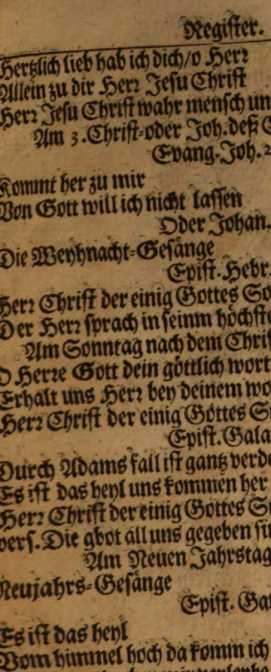 Register.
Hertzlich lieb hab ich dich/o Herr
Allein zu dir Herr Jesu Christ
Herr Jesu Christ wahr mensch un
Am 3. Christ-oder Joh. deß
Evang. Joh. 2
Kommt her zu mir
Von Gott will ich nicht lassen
Oder Johan.
Die Weyhnacht-Gesänge
Epist. Hebr.
Herr Christ der einig Gottes So
Der Herr sprach in seinm höchste
Am Sonntag nach dem Chris
O Herre Gott dein göttlich wort
Erhalt uns Herr bey deinem wo
Herr Christ der einig Gottes S
Epist. Gala
Durch Adams fall ist gantz verde
Es ist das heyl uns kommen her
Herr Christ der einig Gottes S
vers. Die gbot all uns gegeben si
Am Neuen Jahrstag
Neujahrs-Gesänge
Epist. Ga
Es ist das heyl
Vom himmel hoch da komm ich